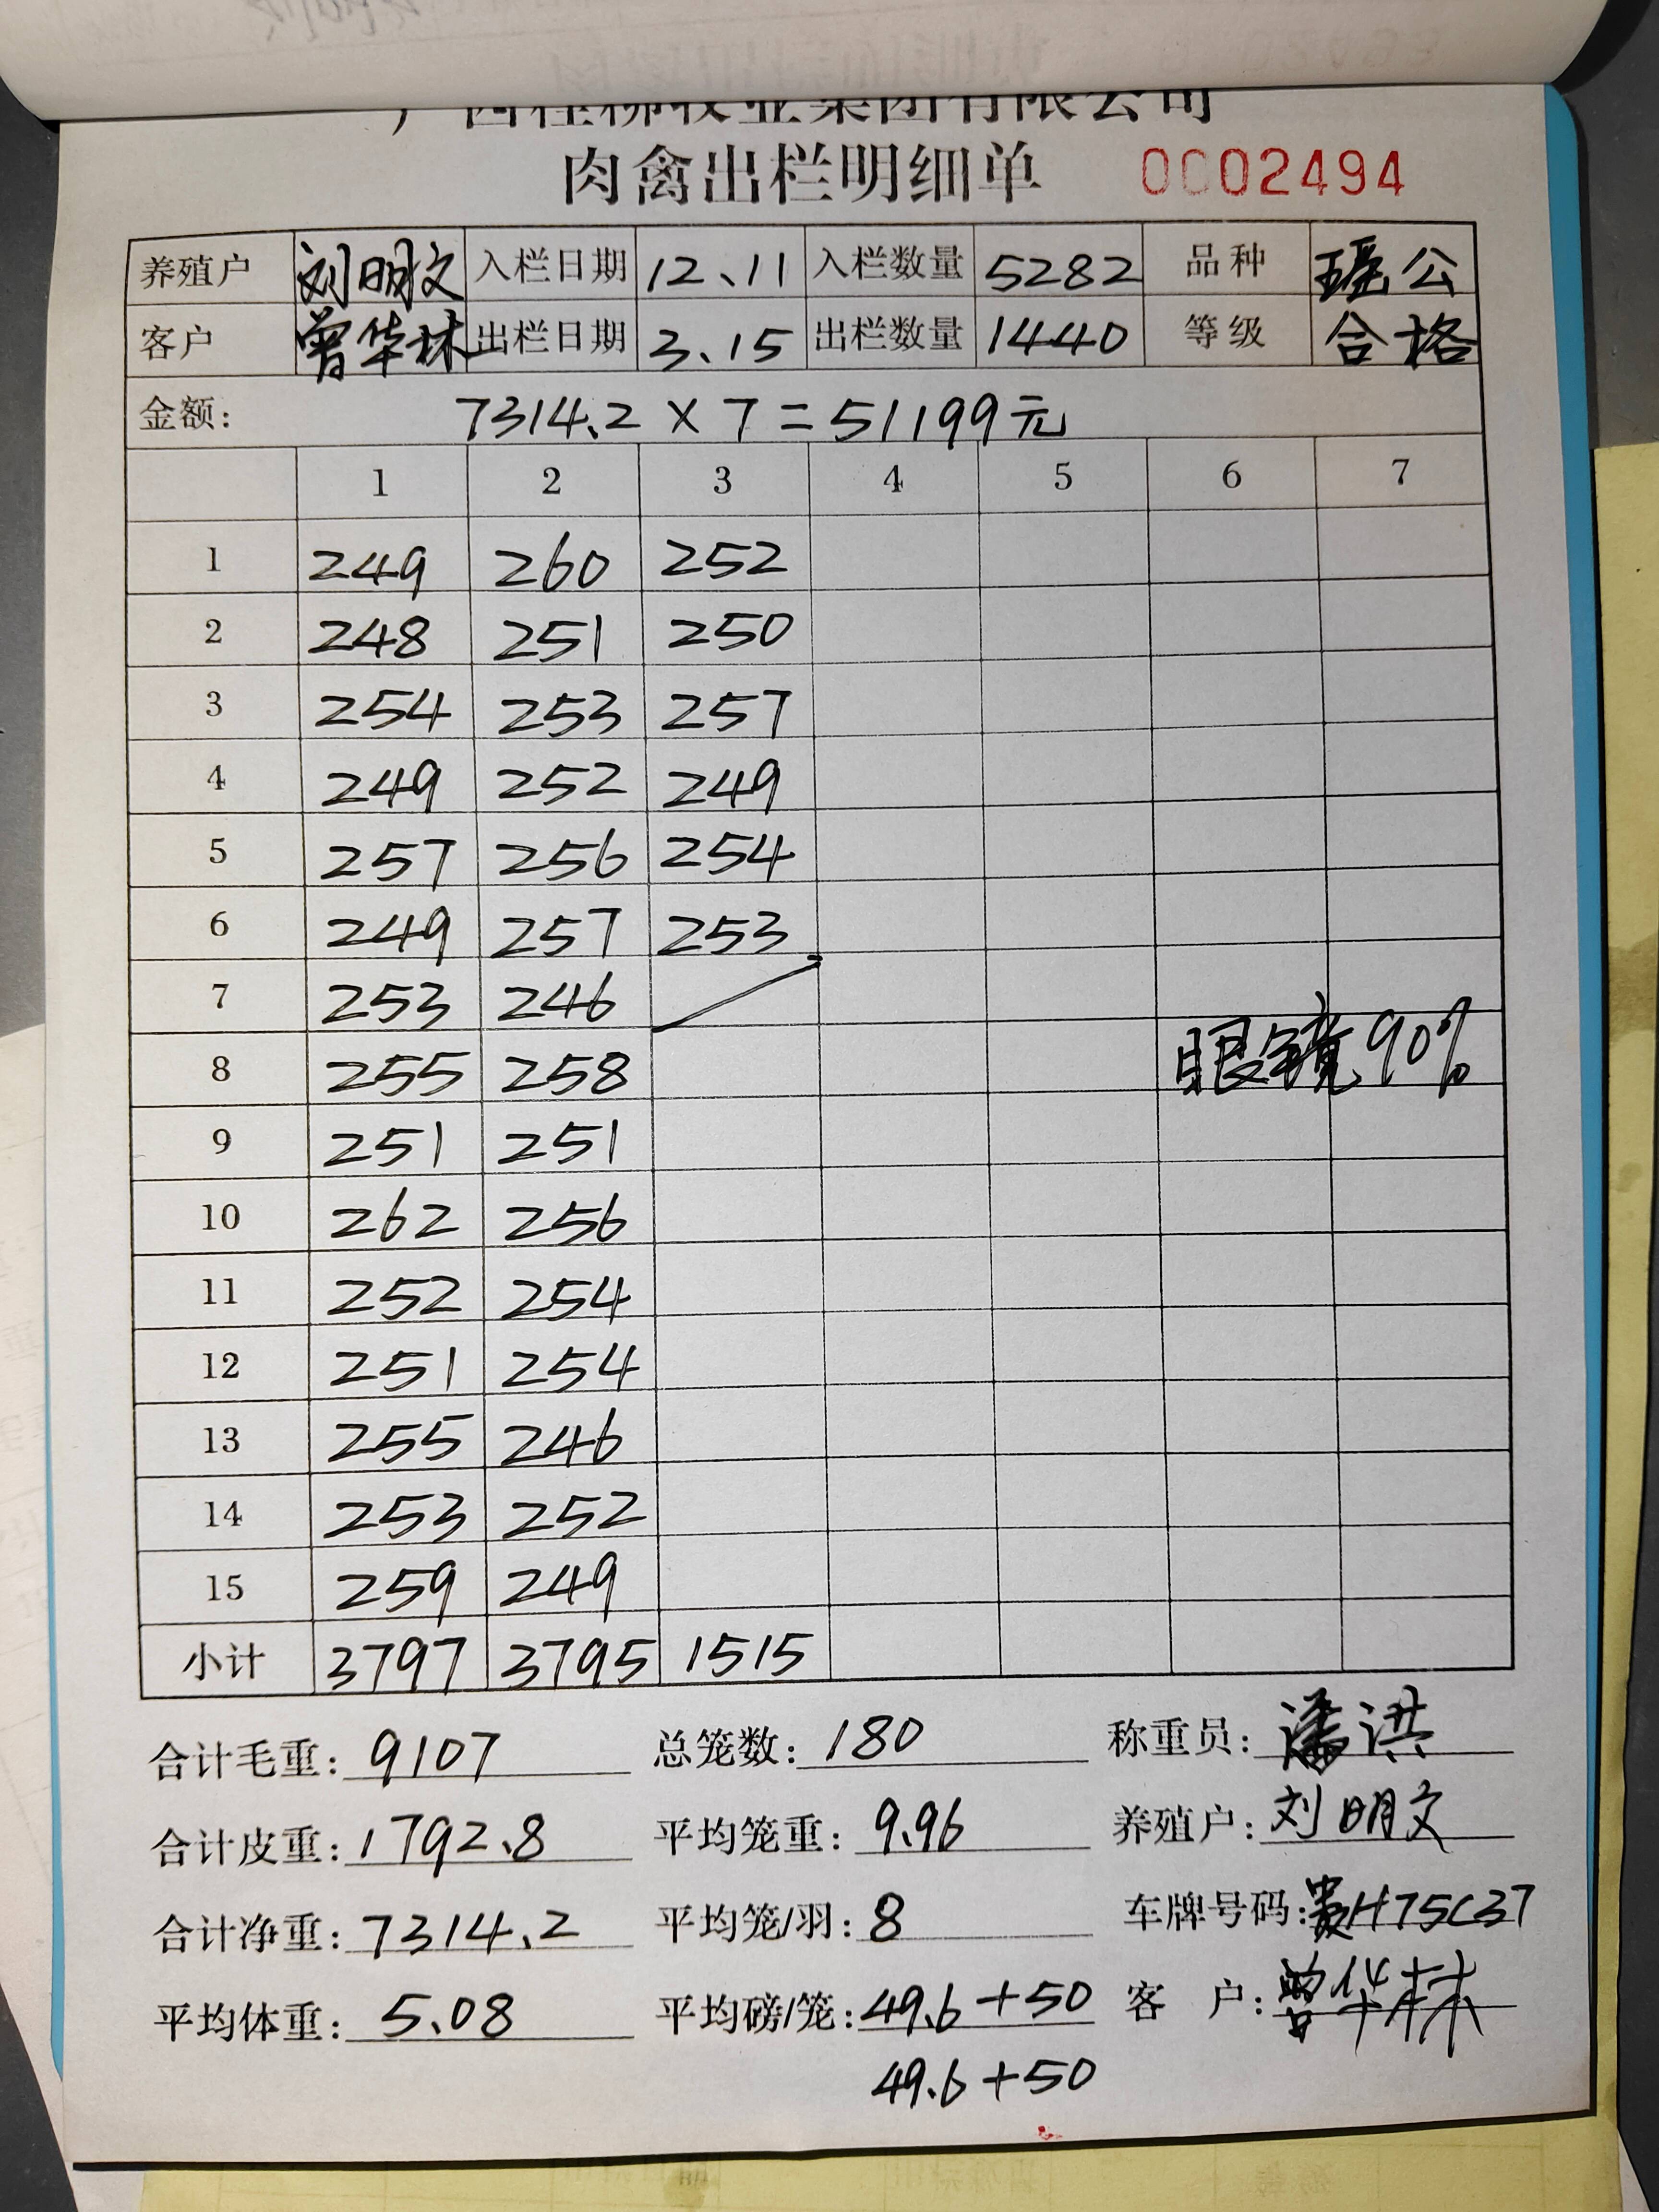 广西桂柳牧业集团有限公司
肉禽出栏明细单 0002494
养殖户 刘明文 入栏日期 12、11 入栏数量 5282 品种 瑶公
客户 曾华林 出栏日期 3、15 出栏数量 1440 等级 合格
金额: 7314.2 × 7 = 51199元
1 2 3 4 5 6 7
1 249 260 252
2 248 251 250
3 254 253 257
4 249 252 249
5 257 256 254
6 249 257 253
7 253 246
8 255 258 眼镜90%
9 251 251
10 262 256
11 252 254
12 251 254
13 255 246
14 253 252
15 259 249
小计 3797 3795 1515
合计毛重: 9107 总笼数: 180 称重员: 潘洪
合计皮重: 1792.8 平均笼重: 9.96 养殖户: 刘明文
合计净重: 7314.2 平均笼/羽: 8 车牌号码: 贵H75C37
平均体重: 5.08 平均磅/笼: 49.6+50 客户: 曾华林
49.6+50